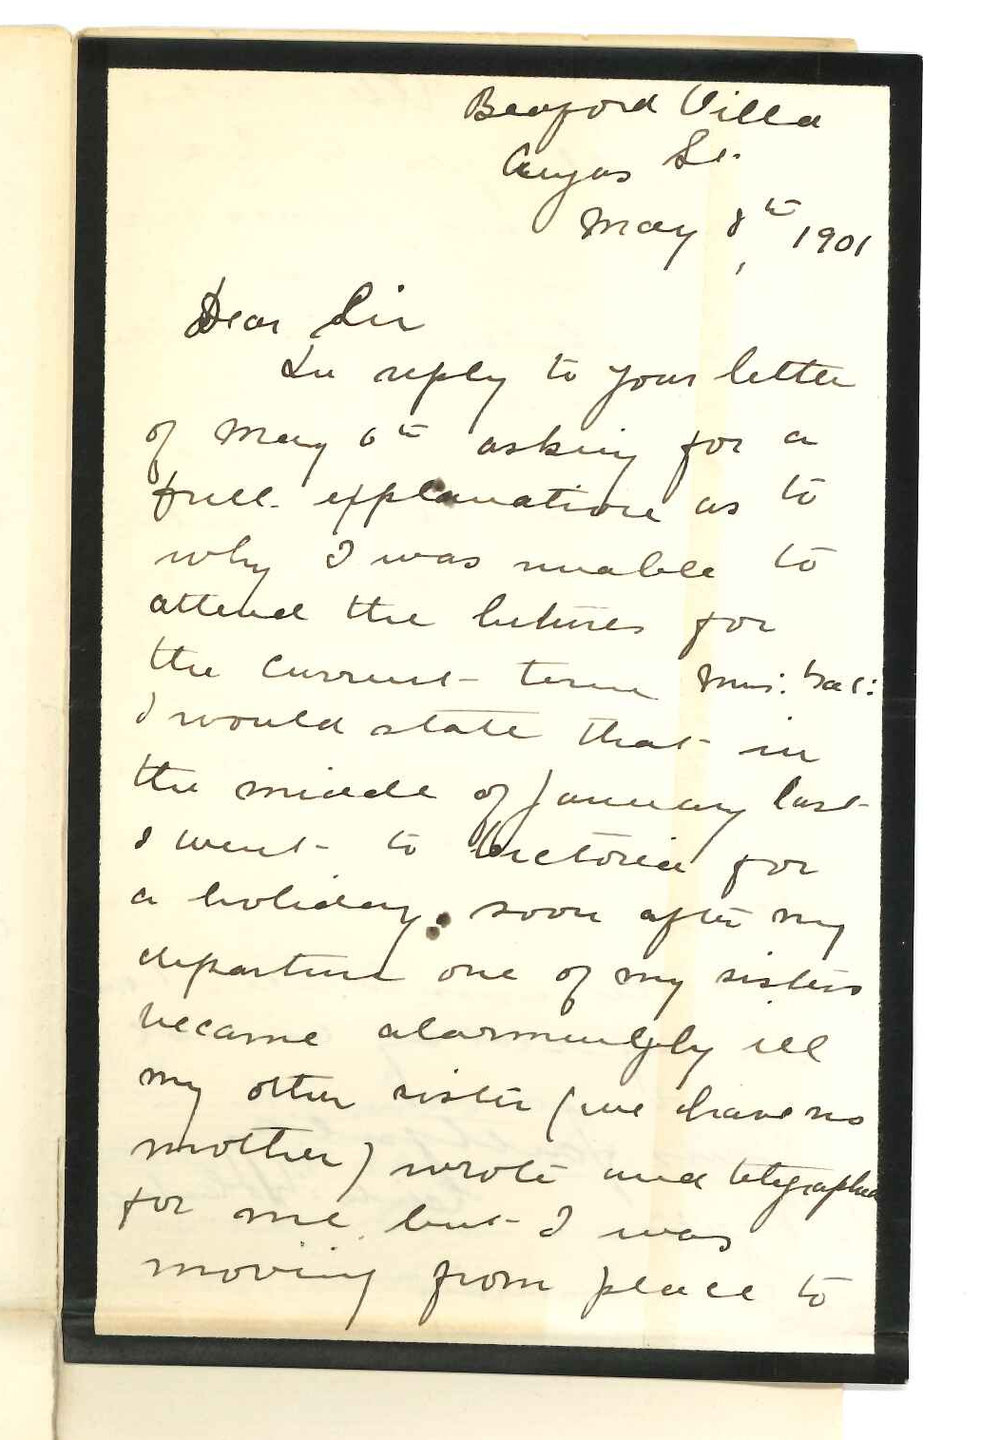 Beaford Villa
Angas St.
May 8th 1901
Dear Sir
In reply to your letter
of May 6th asking for a
full explanation as to
why I was unable to
attend the lectures for
the current term Mus: Bac:
I would state that in
the middle of January last
I went to Victoria for
a holiday. soon after my
departure one of my sisters
became alarmingly ill
my other sister (we have no
mother) wrote and telegraphed
for me but I was
moving from place to